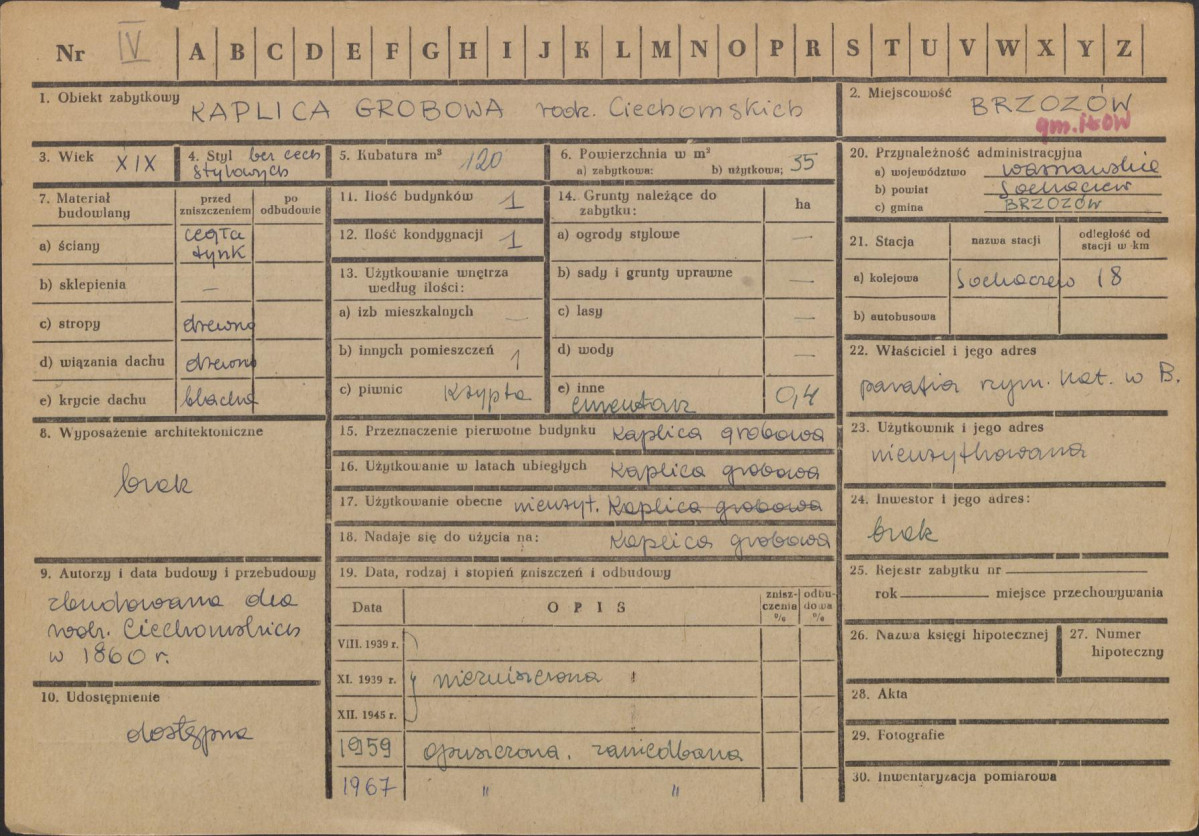 Nr IV A B C D E F G H I J K L M N O P R S T U V W X Y Z
1. Obiekt zabytkowy KAPLICA GROBOWA rodz. Ciechomskich
2. Miejscowość BRZOZÓW
gm. Iłów
3. Wiek XIX
4. Styl bez cech
stylowych
5. Kubatura m³ 120
6. Powierzchnia w m²
a) zabytkowa: b) użytkowa: 35
7. Materiał
budowlany
przed
zniszczeniem
po
odbudowie
a) ściany cegła
tynk
b) sklepienia —
c) stropy drewno
d) wiązania dachu drewno
e) krycie dachu blacha
8. Wyposażenie architektoniczne
brak
9. Autorzy i data budowy i przebudowy
zbudowana dla
rodz. Ciechomskich
w 1860 r.
10. Udostępnienie
dostępna
11. Ilość budynków 1
12. Ilość kondygnacji 1
13. Użytkowanie wnętrza
według ilości:
a) izb mieszkalnych —
b) innych pomieszczeń 1
c) piwnic Krypta
14. Grunty należące do
zabytku:
ha
a) ogrody stylowe —
b) sady i grunty uprawne —
c) lasy —
d) wody —
e) inne
cmentarz 0,4
15. Przeznaczenie pierwotne budynku Kaplica grobowa
16. Użytkowanie w latach ubiegłych Kaplica grobowa
17. Użytkowanie obecne nieużyt. Kaplica grobowa
18. Nadaje się do użycia na: Kaplica grobowa
19. Data, rodzaj i stopień zniszczeń i odbudowy
Data OPIS
znisz-
czenia
%
odbu-
dowa
%
VIII. 1939 r.
XI. 1939 r. niezniszczona
XII. 1945 r.
1959 opuszczona, zaniedbana
1967 " "
20. Przynależność administracyjna
a) województwo warszawskie
b) powiat Sochaczew
c) gmina BRZOZÓW
21. Stacja nazwa stacji
odległość od
stacji w km
a) kolejowa Sochaczew 18
b) autobusowa
22. Właściciel i jego adres
parafia rzym. kat. w B.
23. Użytkownik i jego adres
nieużytkowana
24. Inwestor i jego adres:
brak
25. Rejestr zabytku nr
rok miejsce przechowywania
26. Nazwa księgi hipotecznej
27. Numer
hipoteczny
28. Akta
29. Fotografie
30. Inwentaryzacja pomiarowa